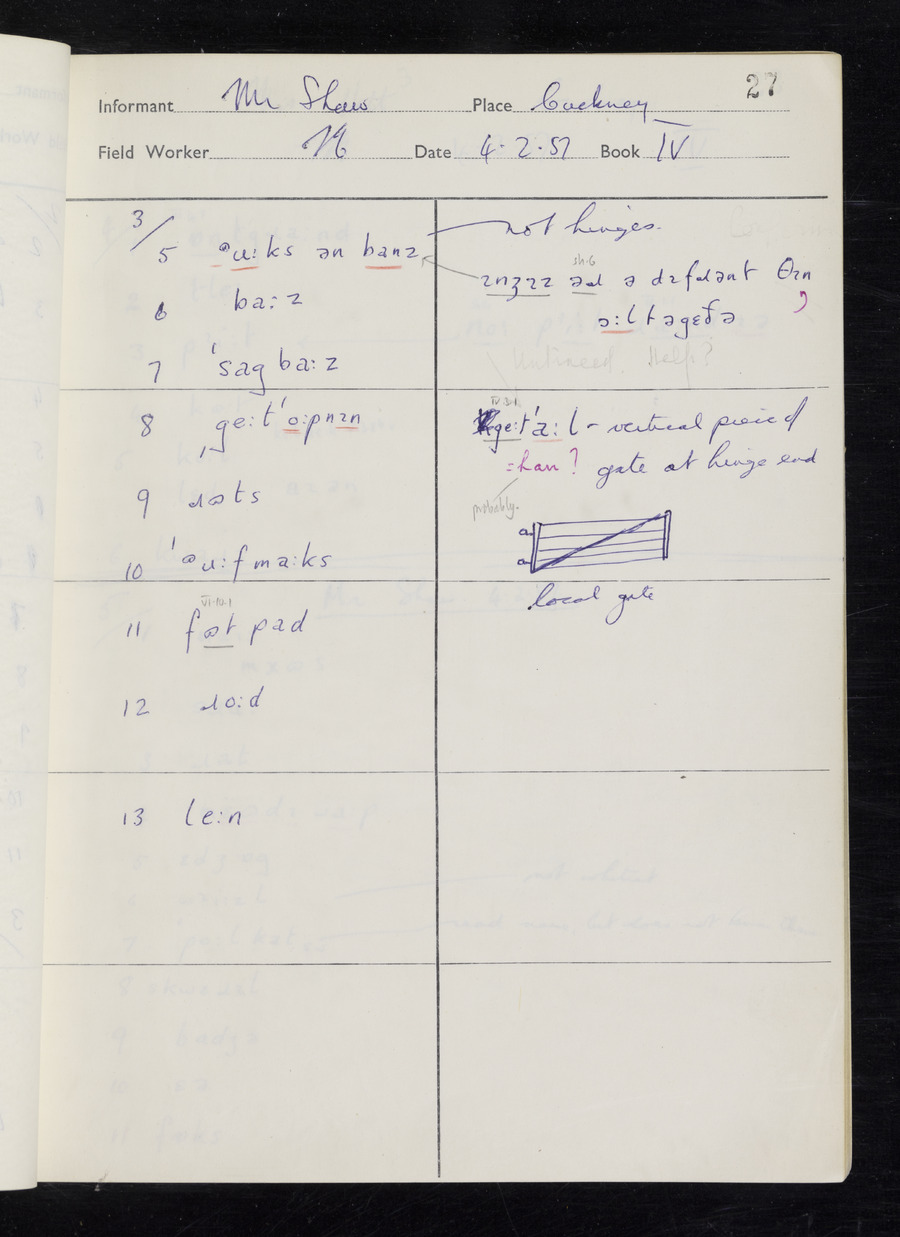 27
Informant Mr Shaw Place Cuckney
Field Worker Date 4.2.57 Book IV
3/5 ᵊu:ks ən banz
not hinges.
sh.6
ɪnʒɪz əɹ ə dɪfɹənt θɪn
6 ba:z
ɔ:ltəgɛðə
7 ˈsag ba:z
Help?
8 ˌge:tˈo:pnɪn
IV.3.1
ge:tˈa:l - vertical piece of
= harr? gate at hinge end
probably.
9 ɹəts
10 ˈᵊu:f ma:ks
local gate
VI.10.1
11 fət pad
12 ɹo:d
13 le:n